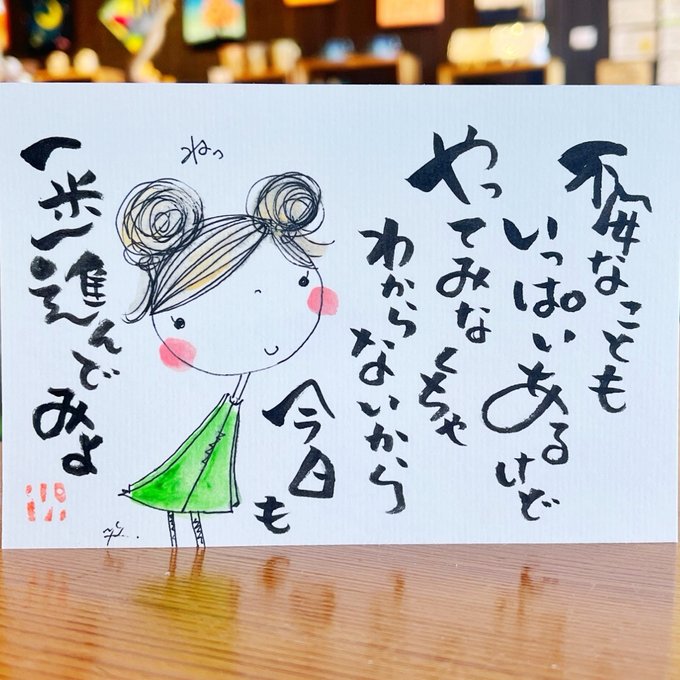 不安なことも
いっぱいあるけど
やってみなくちゃ
わからないから
今日も
一歩進んでみよ
ねっ